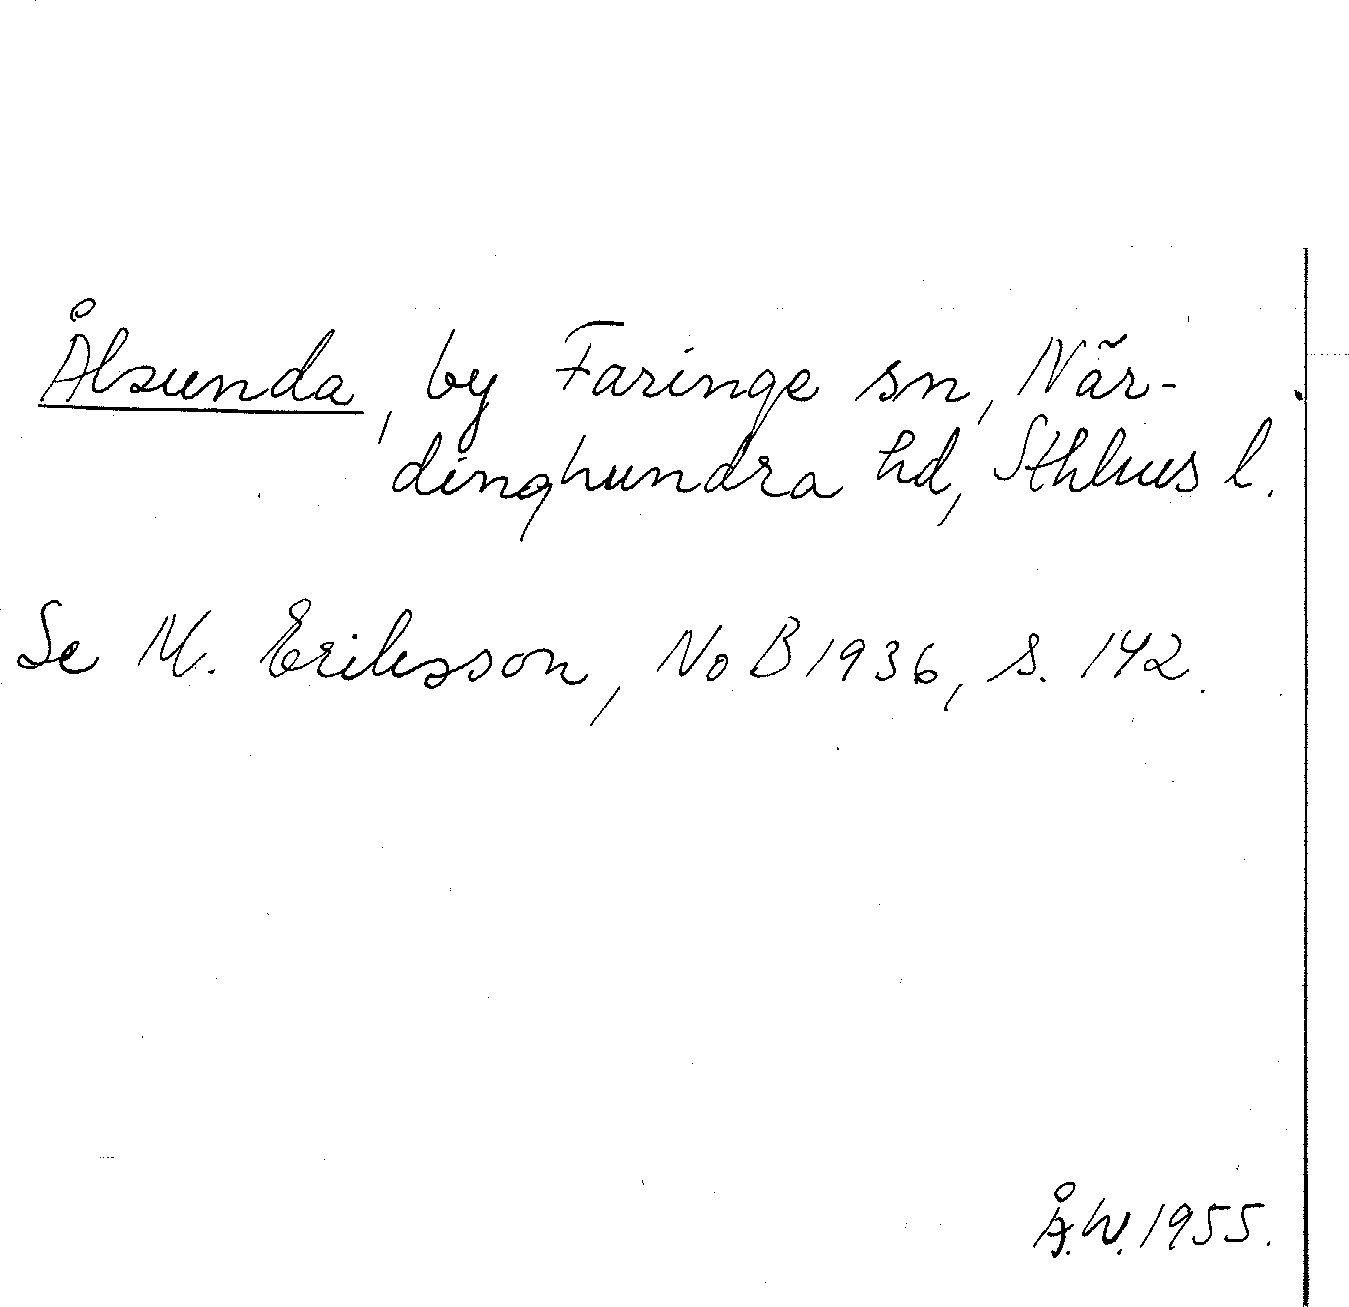 Ålsunda, by Faringe sn, När-
dinghundra hd, Sthlms l.
Se M. Eriksson, NoB 1936, s. 142.
Å.W. 1955.